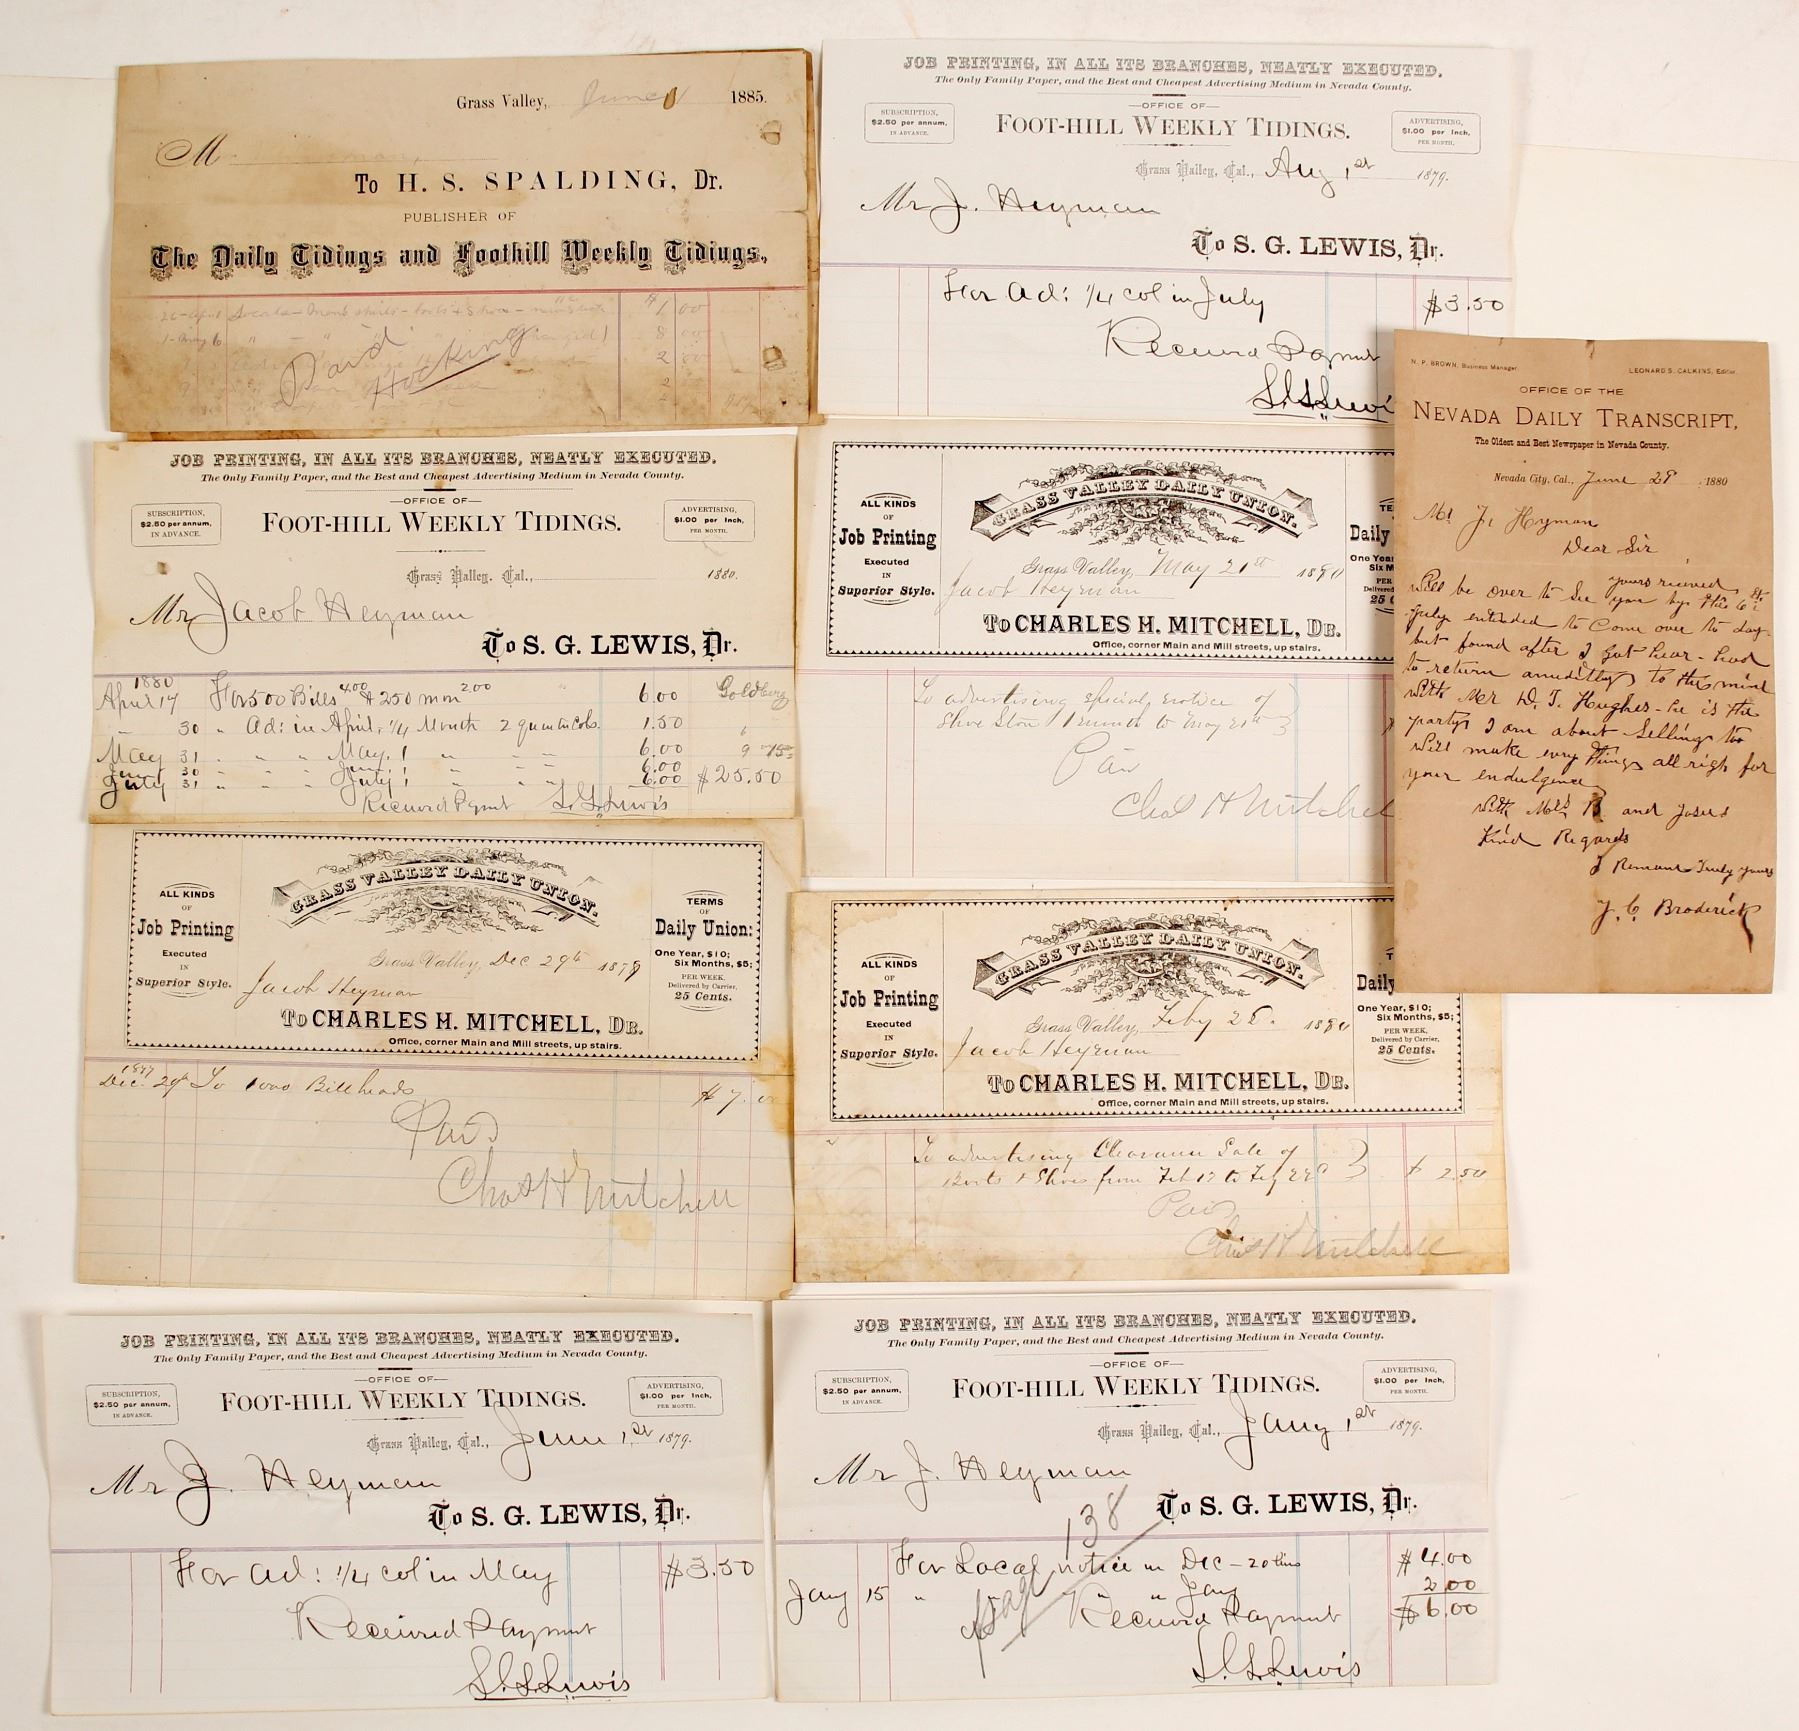 Grass Valley, June 1 1885.
M
To H. S. SPALDING, Dr.
PUBLISHER OF
The Daily Tidings and Foothill Weekly Tidings,
26-April Locals - Mens shirts - boots & shoes - $1 00
1-May 6 " - " 8 00
2 00
2
Paid
Hocking
JOB PRINTING, IN ALL ITS BRANCHES, NEATLY EXECUTED.
The Only Family Paper, and the Best and Cheapest Advertising Medium in Nevada County.
OFFICE OF
SUBSCRIPTION,
$2.50 per annum,
IN ADVANCE.
FOOT-HILL WEEKLY TIDINGS.
ADVERTISING,
$1.00 per Inch,
PER MONTH.
Grass Valley, Cal., Aug 1st 1879.
Mr J. Heyman
To S. G. LEWIS, Dr.
For Ad: 1/4 col in July $3.50
Received Paymnt
S. G. Lewis
N. P. BROWN, Business Manager. LEONARD S. CALKINS, Editor.
OFFICE OF THE
NEVADA DAILY TRANSCRIPT,
The Oldest and Best Newspaper in Nevada County.
Nevada City, Cal., June 29 1880
Mr J. Hyman
Dear Sir
yours rieived
Will be over to See you by the 6th
July entended to Come over to day-
but found after I got hear - had
to return amuditly to the mine
with Mr D. T. Hughes - he is the
party I am about Selling to
Will make evry things all righ for
your endulgence
With Mrs B and
Kind Regards
I Remane Truly yours
J. C. Broderick
JOB PRINTING, IN ALL ITS BRANCHES, NEATLY EXECUTED.
The Only Family Paper, and the Best and Cheapest Advertising Medium in Nevada County.
OFFICE OF
SUBSCRIPTION,
$2.50 per annum,
IN ADVANCE.
FOOT-HILL WEEKLY TIDINGS.
ADVERTISING,
$1.00 per Inch,
PER MONTH.
Grass Valley, Cal., 1880.
Mr Jacob Heyman
To S. G. LEWIS, Dr.
1880
April 17 For 500 Bills 4.00 & 250 mon 2.00 " 6.00 Goldberg
30 " Ad: in April, 1/4 Month 2 quarter cols. 1.50 "
May 31 " " " May. 1 " " " 6.00 9 75
June 30 " " " June 1 " " " 6.00
July 31 " " " July 1 " " " 6.00 $25.50
Received Paymt S. G. Lewis
ALL KINDS
OF
Job Printing
Executed
IN
Superior Style.
GRASS VALLEY DAILY UNION.
Daily
One Year
Six M
PER
Delivered
25 C
Grass Valley, May 21st 1880
Jacob Heyman
To CHARLES H. MITCHELL, DR.
Office, corner Main and Mill streets, up stairs.
To advertising special notice of
Shoe Store 1 month to May 21st
Paid
Chas H Mitchel
ALL KINDS
OF
Job Printing
Executed
IN
Superior Style.
GRASS VALLEY DAILY UNION.
TERMS
OF
Daily Union:
One Year, $10;
Six Months, $5;
PER WEEK,
Delivered by Carrier,
25 Cents.
Grass Valley, Dec 29th 1879
Jacob Heyman
To CHARLES H. MITCHELL, DR.
Office, corner Main and Mill streets, up stairs.
Dec. 29 To 1000 Billheads $7.00
Paid
Chas H Mitchell
ALL KINDS
OF
Job Printing
Executed
IN
Superior Style.
GRASS VALLEY DAILY UNION.
Daily
One Year, $10;
Six Months, $5;
PER WEEK,
Delivered by Carrier,
25 Cents.
Grass Valley, Feby 25. 1880
Jacob Heyman
To CHARLES H. MITCHELL, DR.
Office, corner Main and Mill streets, up stairs.
To advertising Clearance Sale of
Boots & Shoes from Feb 17 to Feby $ 2.50
Paid
Chas H Mitchell
JOB PRINTING, IN ALL ITS BRANCHES, NEATLY EXECUTED.
The Only Family Paper, and the Best and Cheapest Advertising Medium in Nevada County.
OFFICE OF
SUBSCRIPTION,
$2.50 per annum,
IN ADVANCE.
FOOT-HILL WEEKLY TIDINGS.
ADVERTISING,
$1.00 per Inch,
PER MONTH.
Grass Valley, Cal., June 1st 1879.
Mr J. Heyman
To S. G. LEWIS, Dr.
For Ad: 1/4 col in May $3.50
Received Paymnt
S. G. Lewis
JOB PRINTING, IN ALL ITS BRANCHES, NEATLY EXECUTED.
The Only Family Paper, and the Best and Cheapest Advertising Medium in Nevada County.
OFFICE OF
SUBSCRIPTION,
$2.50 per annum,
IN ADVANCE.
FOOT-HILL WEEKLY TIDINGS.
ADVERTISING,
$1.00 per Inch,
PER MONTH.
Grass Valley, Cal., Jany 1st 1879.
Mr J. Heyman
To S. G. LEWIS, Dr.
page 138
For Local notice in Dec - 20 lins $4.00
Jany 15 " " " Jany 2.00
Received Paymnt $6.00
S. G. Lewis